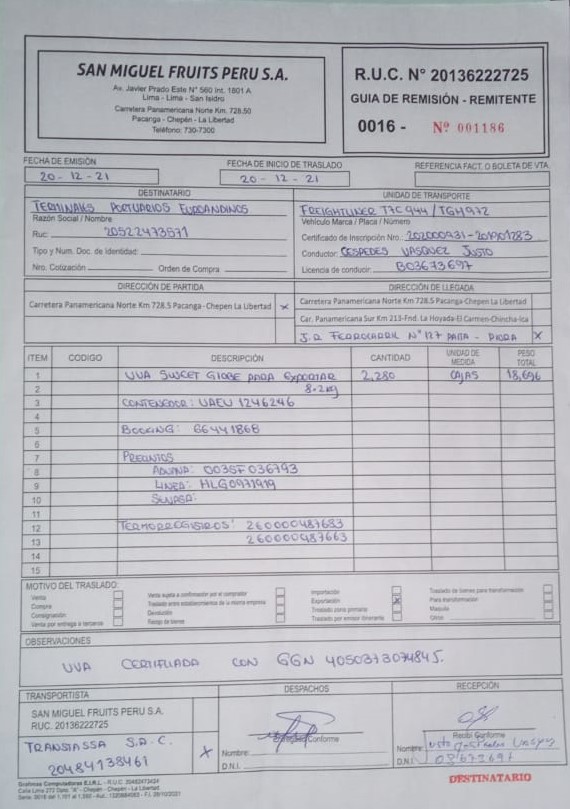 SAN MIGUEL FRUITS PERU S.A.
Av. Javier Prado Este N° 560 Int. 1801 A
Lima - Lima - San Isidro
Carretera Panamericana Norte Km. 728.50
Pacanga - Chepén - La Libertad
Teléfono: 730-7300
R.U.C. N° 20136222725
GUIA DE REMISIÓN - REMITENTE
0016 - Nº 001186
FECHA DE EMISIÓN
20 - 12 - 21
FECHA DE INICIO DE TRASLADO
20 - 12 - 21
REFERENCIA FACT. O BOLETA DE VTA.
DESTINATARIO
TERMINALES PORTUARIOS EUROANDINOS
Razón Social / Nombre
Ruc: 20522473571
Tipo y Num. Doc. de Identidad:
Nro. Cotización Orden de Compra
UNIDAD DE TRANSPORTE
FREIGHTLINER T7C944 / TGM972
Vehículo Marca / Placa / Número
Certificado de Inscripción Nro.: 202000931-201901283
Conductor: CESPEDES VASQUEZ JUSTO
Licencia de conducir B03673697
DIRECCIÓN DE PARTIDA
Carretera Panamericana Norte Km 728.5 Pacanga-Chepen La Libertad x
DIRECCIÓN DE LLEGADA
Carretera Panamericana Norte Km 728.5 Pacanga-Chepen La Libertad
Car. Panamericana Sur Km 213-Fnd. La Hoyada-El Carmen-Chincha-Ica
J.R FERROCARRIL N° 127 PAITA - PIURA X
ITEM CODIGO DESCRIPCIÓN CANTIDAD UNIDAD DE MEDIDA PESO TOTAL
1 UVA SWEET GLOBE PARA EXPORTAR 2,280 CAJAS 18,696
2 8.2kg
3 CONTENEDOR: UAEU 1246246
4
5 BOOKING: 66441868
6
7 PRECINTOS
8 ADUANA: 003SF036793
9 LINEA: HLG0971919
10 SENASA:
11
12 TERMOREGISTROS: 260000487683
13 260000487663
14
15
MOTIVO DEL TRASLADO:
Venta
Compra
Consignación
Venta por entrega a terceros
Venta sujeta a confirmación por el comprador
Traslado entre establecimientos de la misma empresa
Devolución
Recojo de bienes
Importación
Exportación X
Traslado zona primaria
Traslado por emisor itinerante
Traslado de bienes para transformación
Para transformación
Otros
OBSERVACIONES
UVA CERTIFICADA CON GGN 4050373074845.
TRANSPORTISTA
SAN MIGUEL FRUITS PERU S.A.
RUC. 20136222725
TRANSIASSA S.A.C.
20484138461 X
DESPACHOS
Conforme
Nombre:
D.N.I.
RECEPCIÓN
Recibí Conforme
Nombre:
D.N.I. 03673697
DESTINATARIO